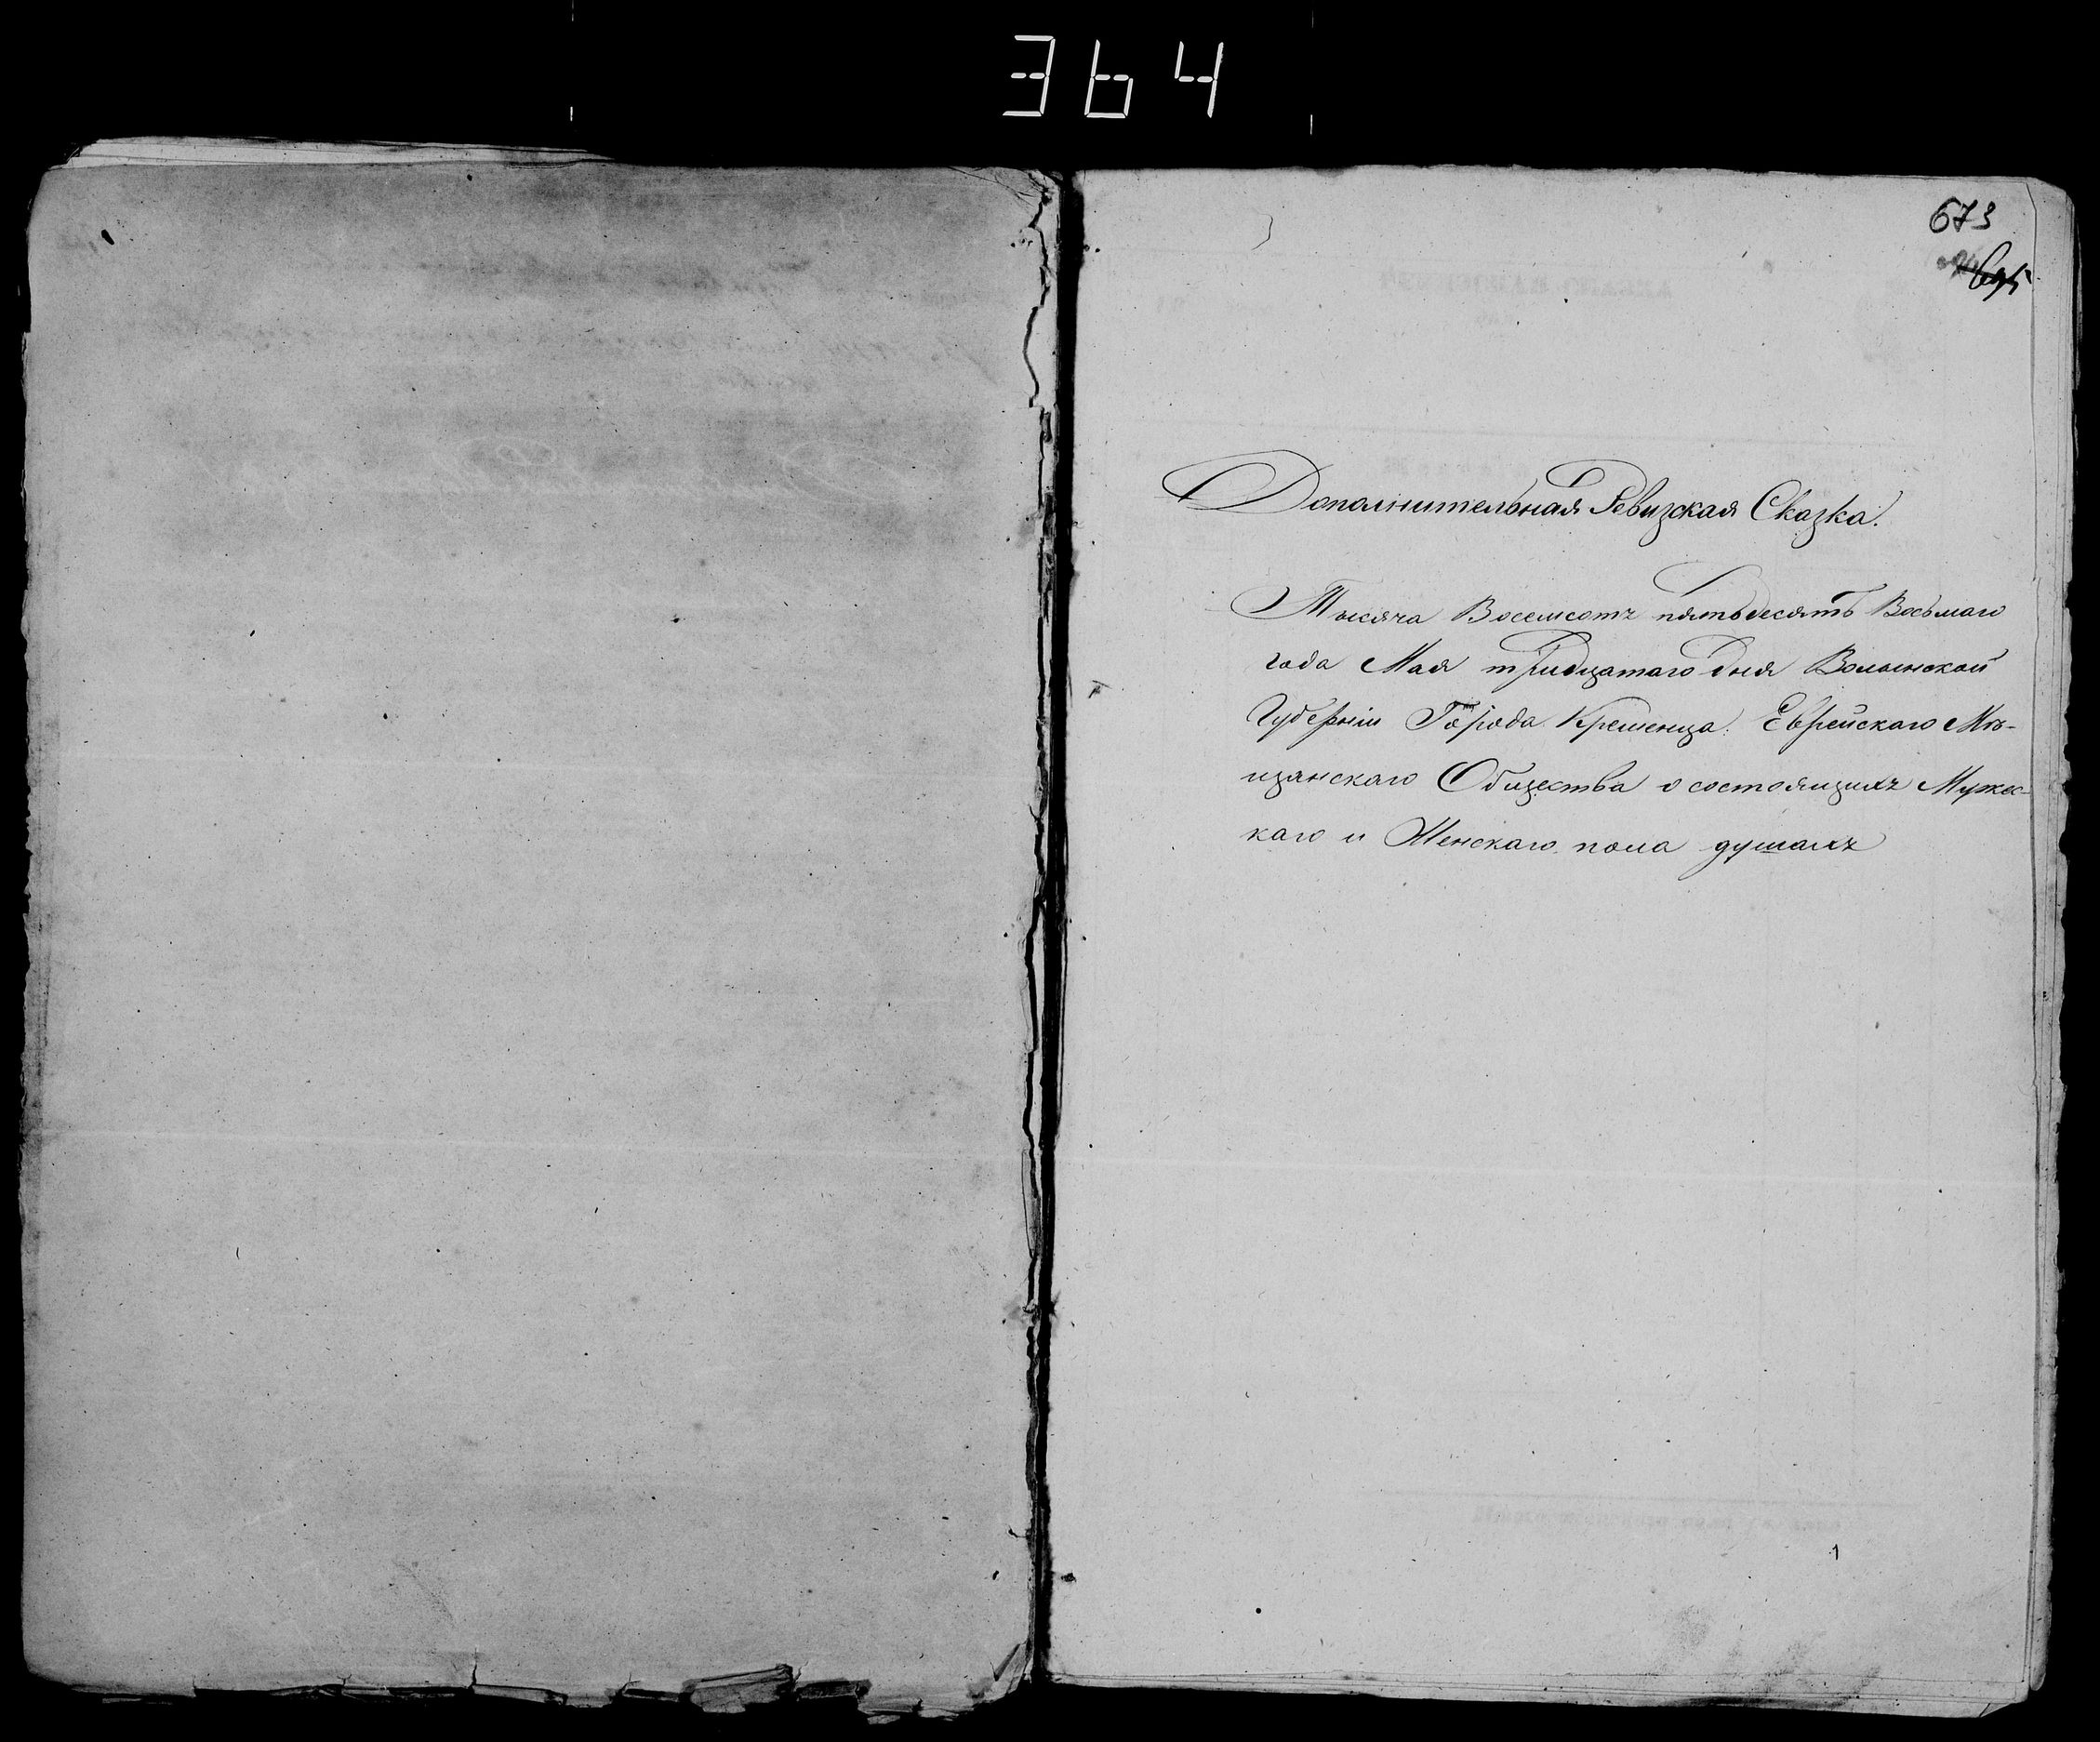 364
673
Дополнительная Ревизская Сказка.
Тысяча Восемсотъ пятьдесять Восьмаго
года Мая тридцатаго дня Волынской
Губерніи Города Кременца. Еврейскаго Мѣ-
щанскаго Общества о состоящихъ Мужес-
каго и Женскаго пола душахъ
РЕВИЗСКАЯ СКАЗКА